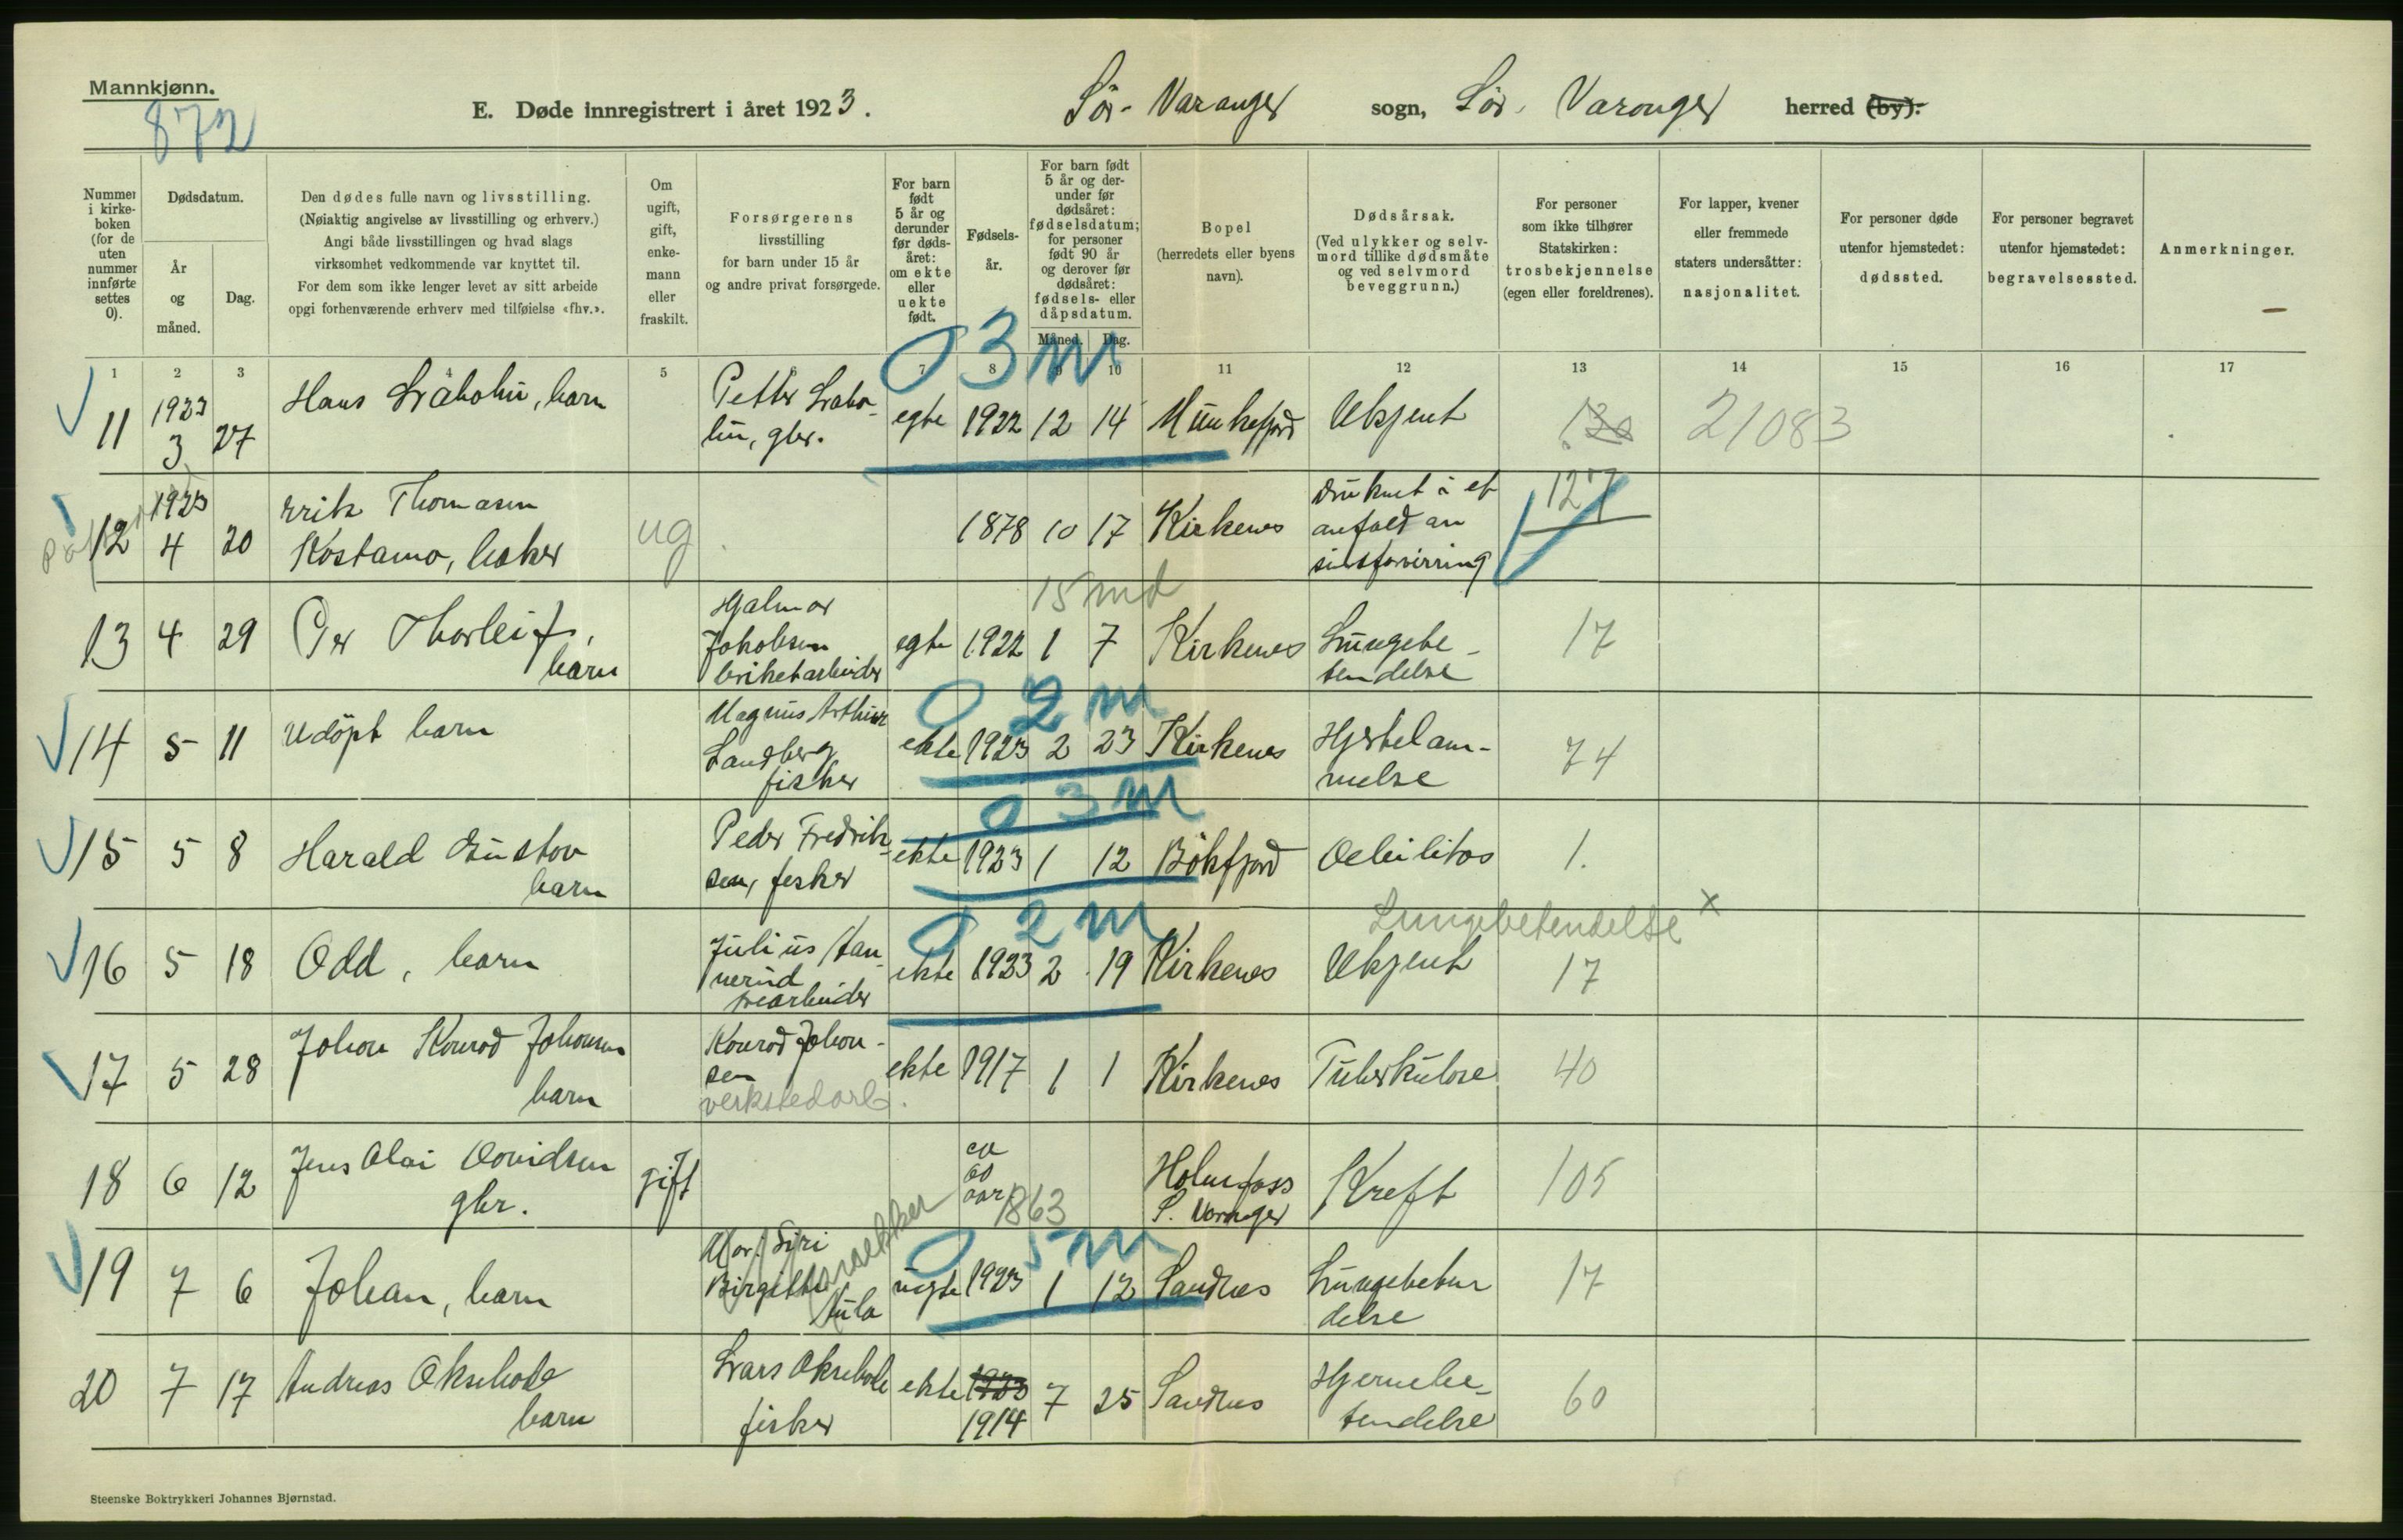 Mannkjønn.
872
E. Døde innregistrert i året 1923.
Sör-Varanger sogn, Sör-Varanger herred (by).
Nummer i kirke-boken (for de uten nummer innførte settes 0).
Dødsdatum.
År og måned.
Dag.
Den dødes fulle navn og livsstilling.
(Nøiaktig angivelse av livsstilling og erhverv.)
Angi både livsstillingen og hvad slags
virksomhet vedkommende var knyttet til.
For dem som ikke lenger levet av sitt arbeide
opgi forhenværende erhverv med tilføielse «fhv.».
Om ugift, gift, enke-mann eller fraskilt.
Forsørgerens
livsstilling
for barn under 15 år
og andre privat forsørgede.
For barn født 5 år og derunder før døds-året: om ekte eller uekte født.
Fødsels-år.
For barn født 5 år og der-under før dødsåret: fødselsdatum; for personer født 90 år og derover før dødsåret: fødsels- eller dåpsdatum.
Måned. Dag.
Bopel
(herredets eller byens navn).
Dødsårsak.
(Ved ulykker og selv-mord tillike dødsmåte og ved selvmord beveggrunn.)
For personer som ikke tilhører Statskirken: trosbekjennelse (egen eller foreldrenes).
For lapper, kvener eller fremmede staters undersåtter: nasjonalitet.
For personer døde utenfor hjemstedet: dødssted.
For personer begravet utenfor hjemstedet: begravelsessted.
Anmerkninger.
1 2 3 4 5 7 8 9 10 11 12 13 14 15 16 17
0 3 m
11 1923 3 27 Hans , barn Petter , gbr. egte 1922 12 14 Munkefjord Ukjent 130 21083
12 1923 4 20 Erik Thomasen
Kostamo, baker ug 1878 10 17 Kirkenes Druknet i et
anfald av
sinsforvirring 127
15 md
13 4 29 Per Thorleif,
barn Hjalmar
Jakobsen
briketarbeider egte 1922 1 7 Kirkenes Lungebe-
tendelse 17
0 2 m
14 5 11 Udöpt barn Magnus Arthur
Sandberg
fisker ekte 1923 2 23 Kirkenes Hjertelam-
melse 74
0 3 m
15 5 8 Harald Gustav
barn Peder Fredrik-
sen, fisker ekte 1923 1 12 Bökfjord 1.
0 2 m
Lungebetendelse x
16 5 18 Odd, barn Julius ekte 1923 2 19 Kirkenes Ukjent 17
17 5 28 Johan Konrad Johansen
barn Konrad Johan-
sen
verkstedarb. ekte 1917 1 1 Kirkenes Tuberkulose 40
18 6 12 Jens Olai
gbr. gift ca
60
aar 1863 Holmfoss
S. Varanger Kreft 105
0 5 m
19 7 6 Johan, barn Mor: Siri
Birgitte
uegte 1923 1 12 Sandnes Lungebeten
delse 17
20 7 17 Andreas Oksebode
barn Lars Oksebode
fisker ekte 1923
1914 7 25 Sandnes Hjernebe-
tendelse 60
Steenske Boktrykkeri Johannes Bjørnstad.